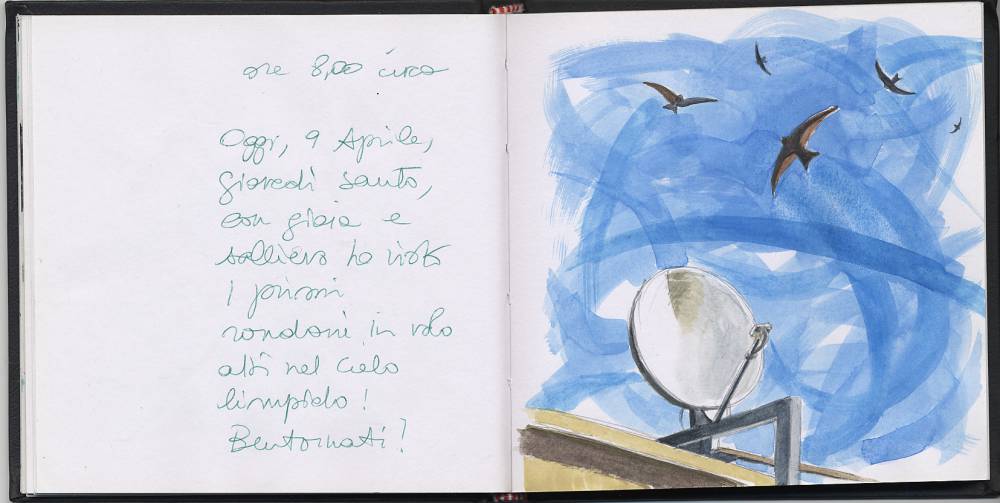 ore 8,00 circa
Oggi, 9 Aprile,
giovedì santo,
con gioia e
sollievo ho visto
i primi
rondoni in volo
alti nel cielo
limpido!
Bentornati!